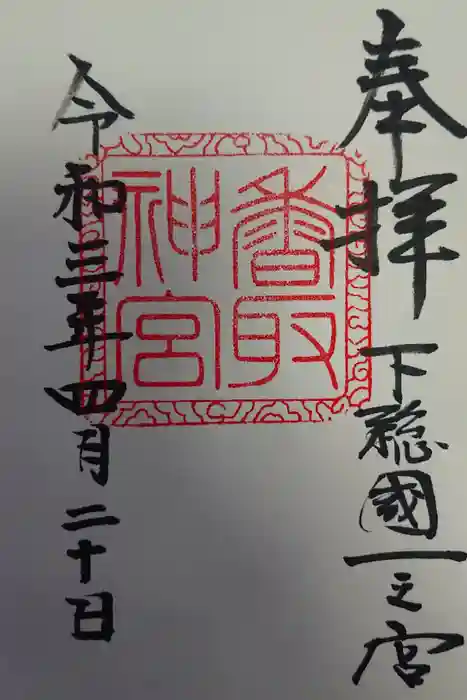 奉拝
下総國一之宮
香取
神宮
令和三年四月二十日